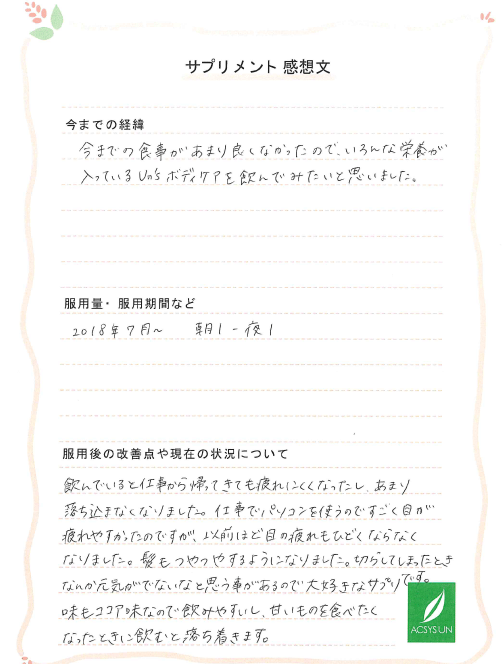 サプリメント 感想文
今までの経緯
今までの食事があまり良くなかったので、いろんな栄養が
入っているUn'sボディケアを飲んでみたいと思いました。
服用量・服用期間など
2018年7月~ 朝1-夜1
服用後の改善点や現在の状況について
飲んでいると仕事から帰ってきても疲れにくくなったし、あまり
落ち込まなくなりました。仕事でパソコンを使うのですごく目が
疲れやすかったのですが、以前ほど目の疲れもひどくならなく
なりました。髪もつやつやするようになりました。切らしてしまったとき
なんか元気がでないなと思う事があるので大好きなサプリです。
味もココア味なので飲みやすいし、甘いものを食べたく
なったときに飲むと落ち着きます。
ACSYS'UN